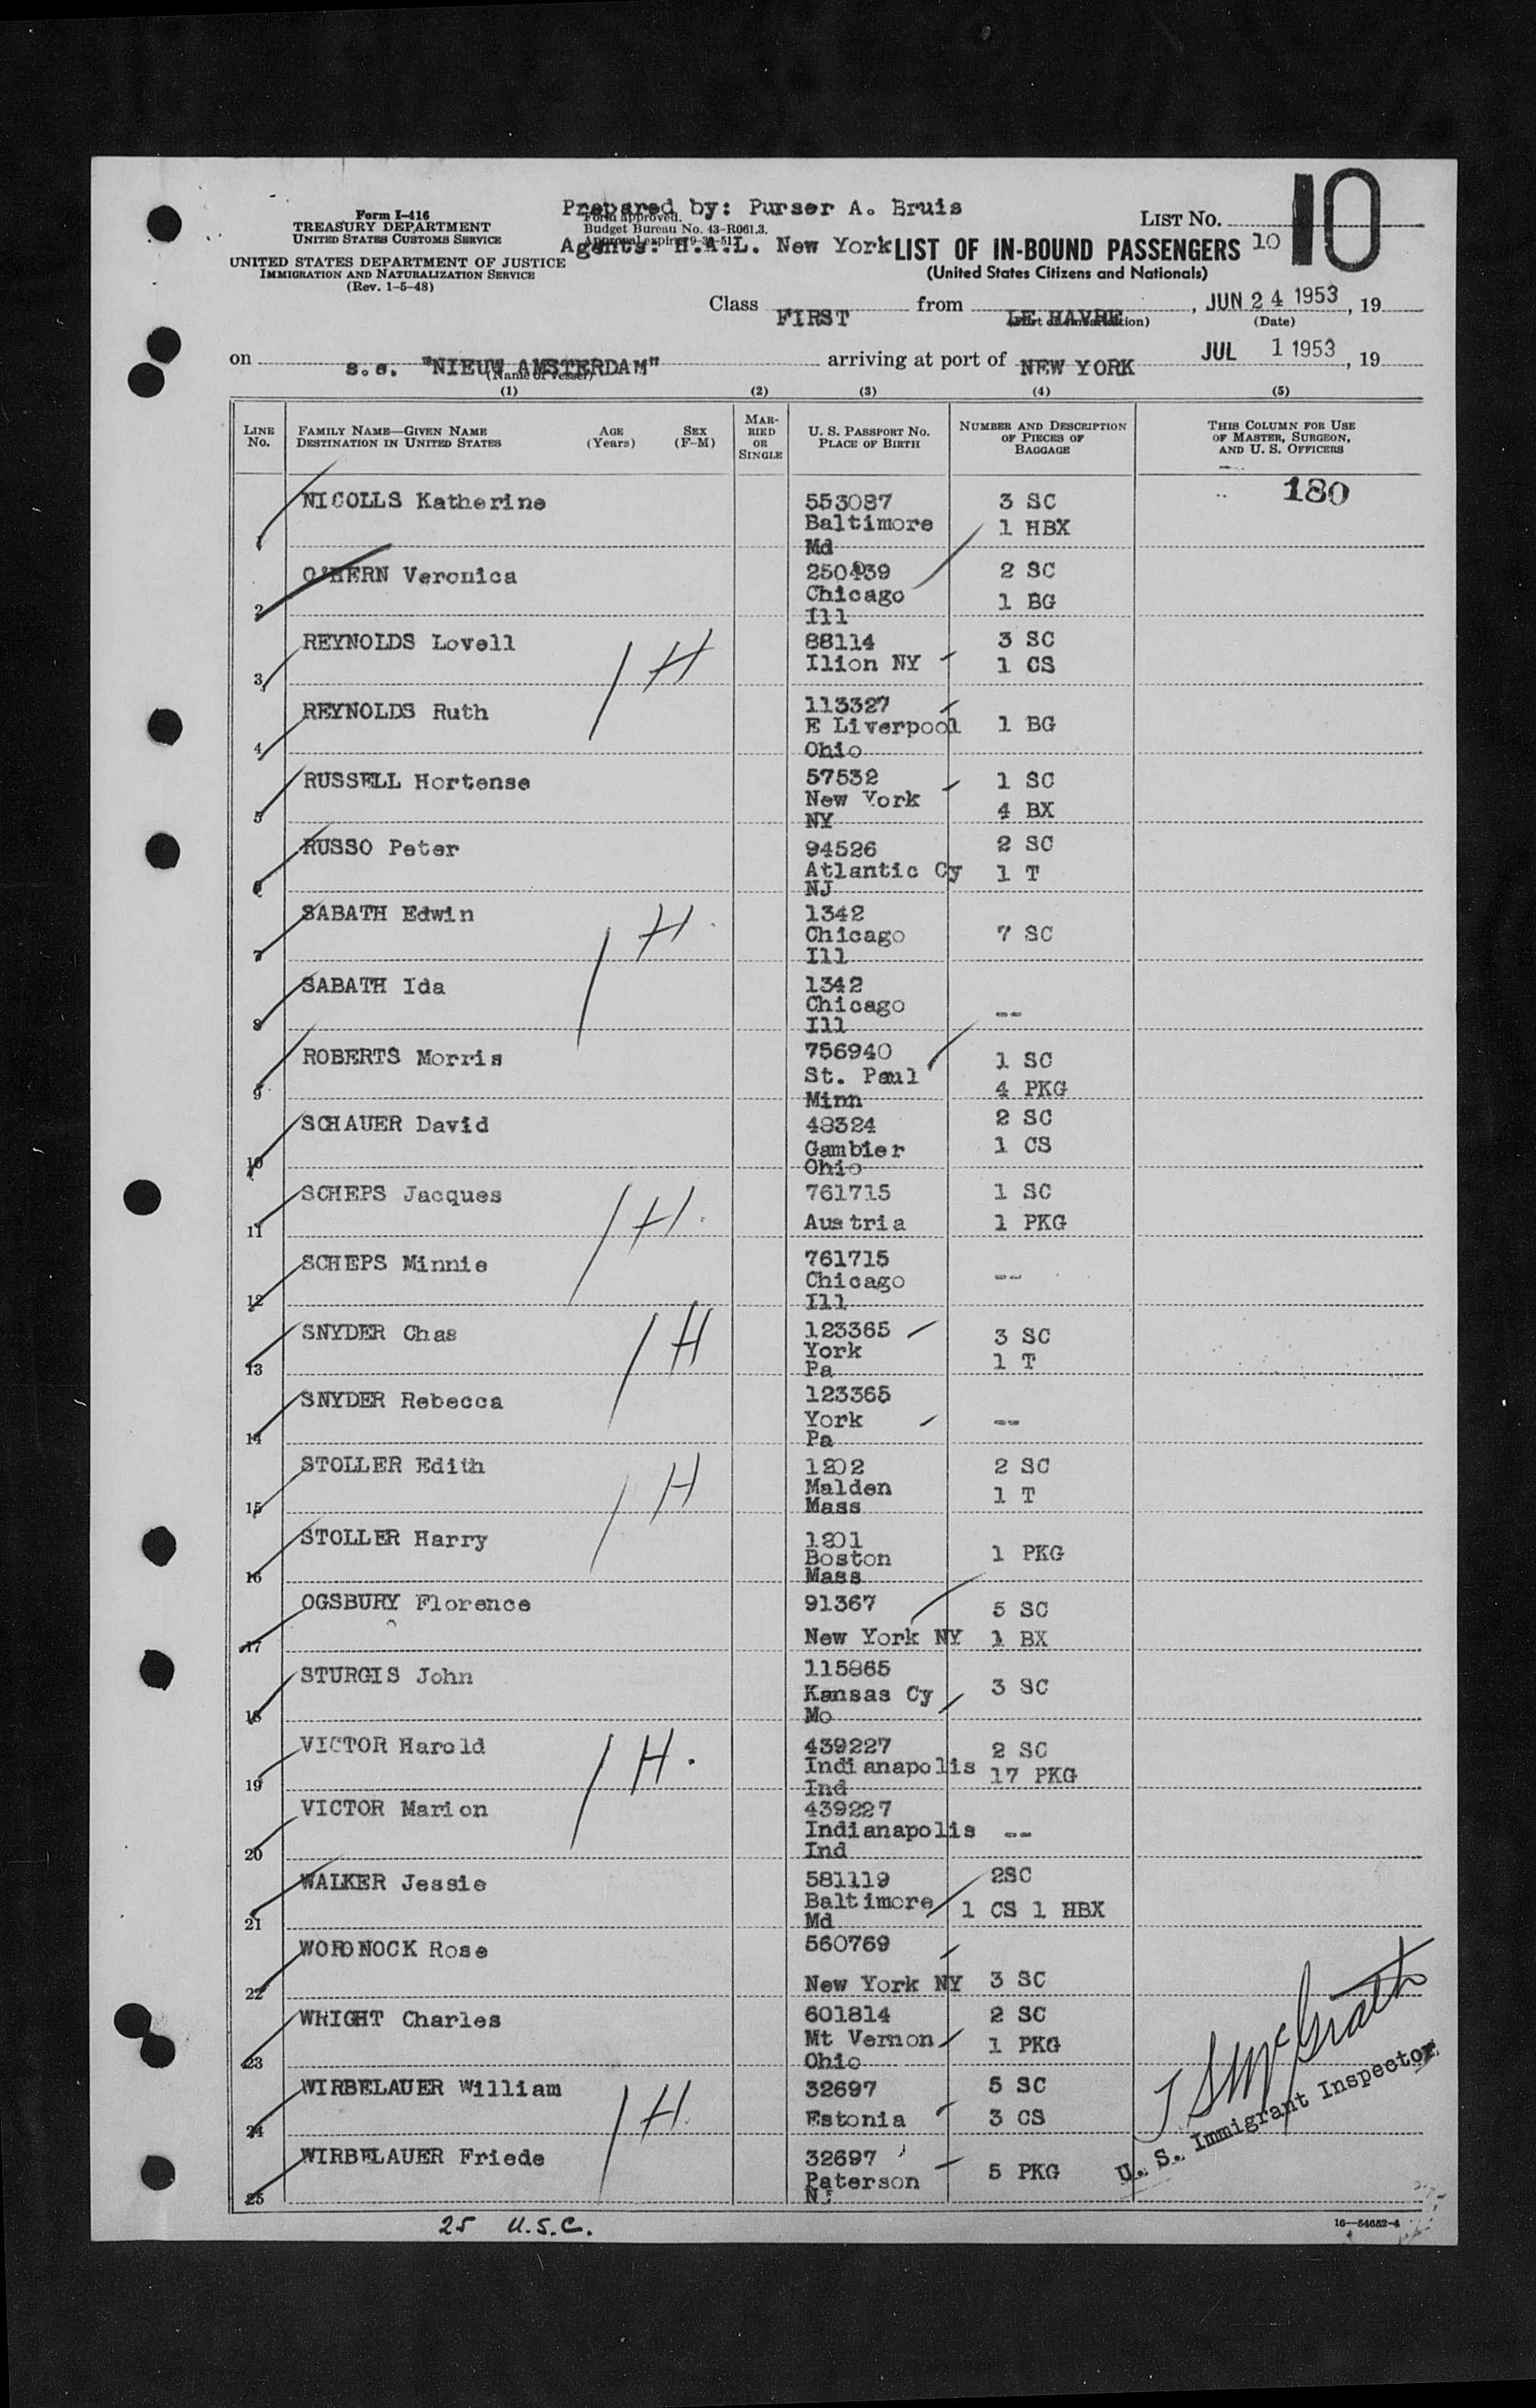 Form I-416
TREASURY DEPARTMENT
UNITED STATES CUSTOMS SERVICE
UNITED STATES DEPARTMENT OF JUSTICE
IMMIGRATION AND NATURALIZATION SERVICE
(Rev. 1-5-48)
Prepared by: Purser A. Bruis
Form approved.
Budget Bureau No. 43-R061.3.
Approval expires 9-30-51.
Agents: H.A.L. New York
LIST NO. 10
10
LIST OF IN-BOUND PASSENGERS
(United States Citizens and Nationals)
Class FIRST from LE HAVRE, JUN 24 1953, 19
(Port of embarkation) (Date)
on s.s. "NIEUW AMSTERDAM" arriving at port of NEW YORK JUL 1 1953, 19
(Name of vessel)
(1) (2) (3) (4) (5)
LINE NO.
FAMILY NAME—GIVEN NAME
DESTINATION IN UNITED STATES
AGE (Years)
SEX (F-M)
MARRIED OR SINGLE
U. S. PASSPORT NO.
PLACE OF BIRTH
NUMBER AND DESCRIPTION OF PIECES OF BAGGAGE
THIS COLUMN FOR USE OF MASTER, SURGEON, AND U. S. OFFICERS
180
1 NICOLLS Katherine 553087 3 SC
Baltimore 1 HBX
Md
2 O'HERN Veronica 250439 2 SC
Chicago 1 BG
Ill
3 REYNOLDS Lovell H 88114 3 SC
Ilion NY 1 CS
4 REYNOLDS Ruth 113327
E Liverpool 1 BG
Ohio
5 RUSSELL Hortense 57532 1 SC
New York 4 BX
NY
6 RUSSO Peter 94526 2 SC
Atlantic Cy 1 T
NJ
7 SABATH Edwin H 1342
Chicago 7 SC
Ill
8 SABATH Ida 1342
Chicago --
Ill
9 ROBERTS Morris 756940 1 SC
St. Paul 4 PKG
Minn
10 SCHAUER David 48324 2 SC
Gambier 1 CS
Ohio
11 SCHEPS Jacques H. 761715 1 SC
Austria 1 PKG
12 SCHEPS Minnie 761715
Chicago --
Ill
13 SNYDER Chas H 123365 3 SC
York 1 T
Pa
14 SNYDER Rebecca 123365
York --
Pa
15 STOLLER Edith H 1202 2 SC
Malden 1 T
Mass
16 STOLLER Harry 1201
Boston 1 PKG
Mass
17 OGSBURY Florence 91367 5 SC
New York NY 1 BX
18 STURGIS John 115865
Kansas Cy 3 SC
Mo
19 VICTOR Harold H. 439227 2 SC
Indianapolis 17 PKG
Ind
20 VICTOR Marion 439227
Indianapolis --
Ind
21 WALKER Jessie 581119 2SC
Baltimore 1 CS 1 HBX
Md
22 WORONOCK Rose 560769
New York NY 3 SC
23 WRIGHT Charles 601814 2 SC
Mt Vernon 1 PKG
Ohio
24 WIRBELAUER William H. 32697 5 SC
Estonia 3 CS
25 WIRBELAUER Friede 32697
Paterson 5 PKG
NJ
McGrath
U. S. Immigrant Inspector
25 U.S.C.
16—54652-4